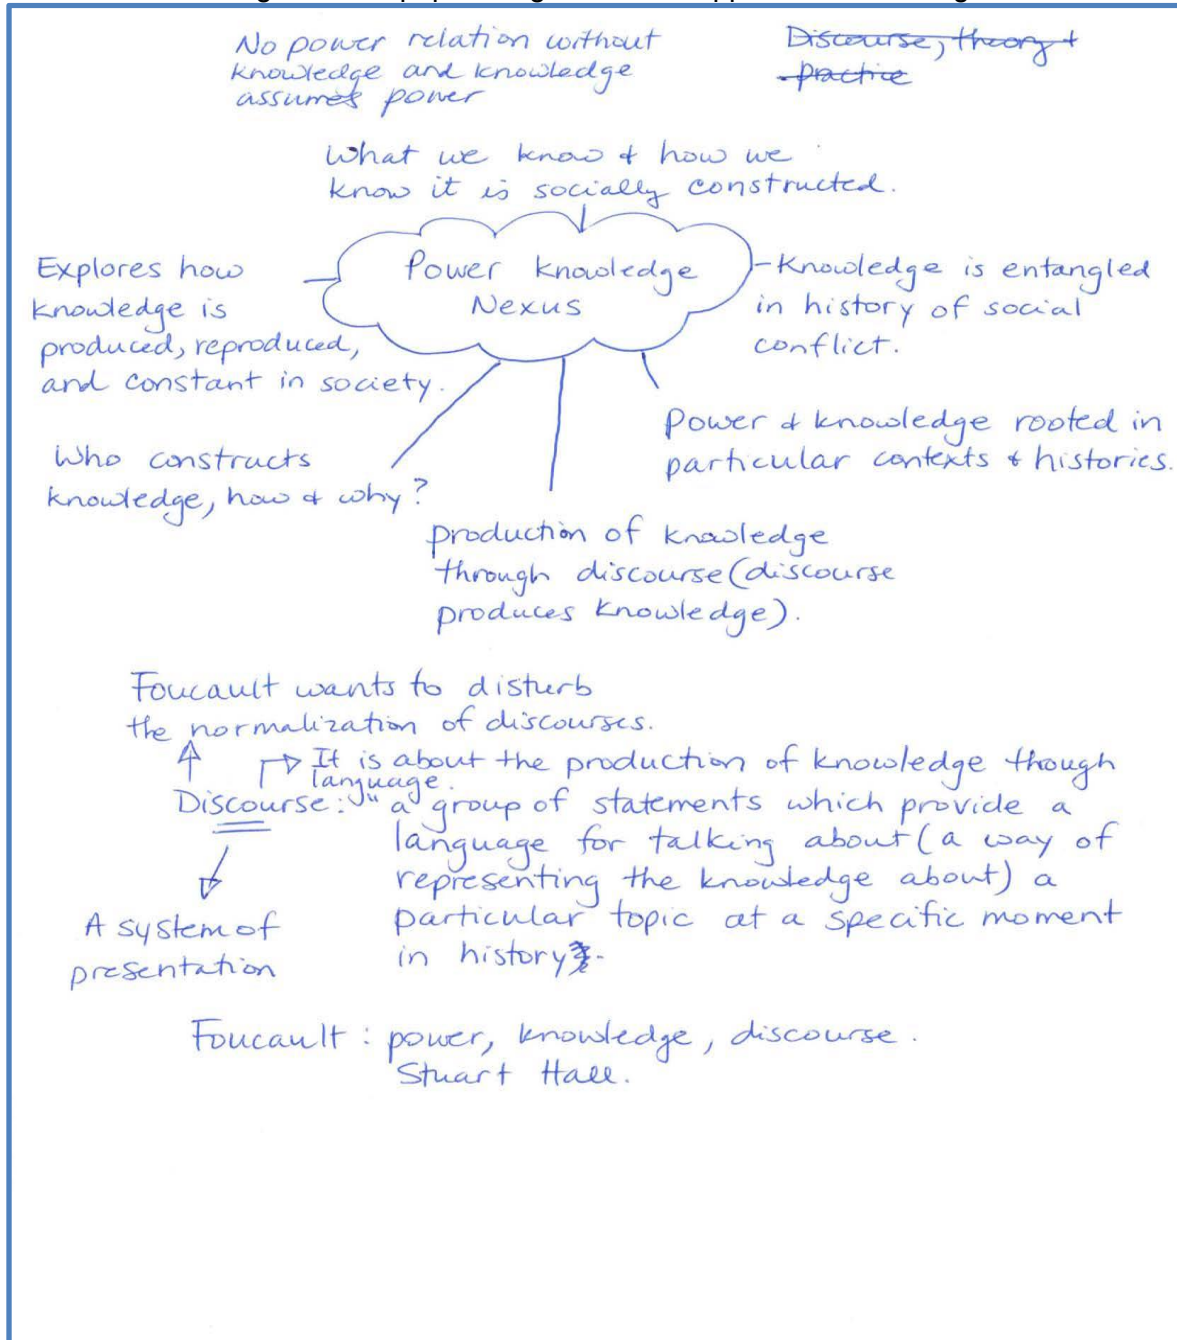 No power relation without
knowledge and knowledge
assumes power
Discourse, theory +
practice
What we know & how we
know it is socially constructed.
Power knowledge
Nexus
Explores how
knowledge is
produced, reproduced,
and constant in society.
-Knowledge is entangled
in history of social
conflict.
Who constructs
knowledge, how & why?
Power & knowledge rooted in
particular contexts & histories.
production of knowledge
through discourse (discourse
produces knowledge).
Foucault wants to disturb
the normalization of discourses.
It is about the production of knowledge though
language.
Discourse: "a group of statements which provide a
language for talking about (a way of
representing the knowledge about) a
particular topic at a specific moment
in history
A system of
presentation
Foucault : power, knowledge, discourse.
Stuart Hall.